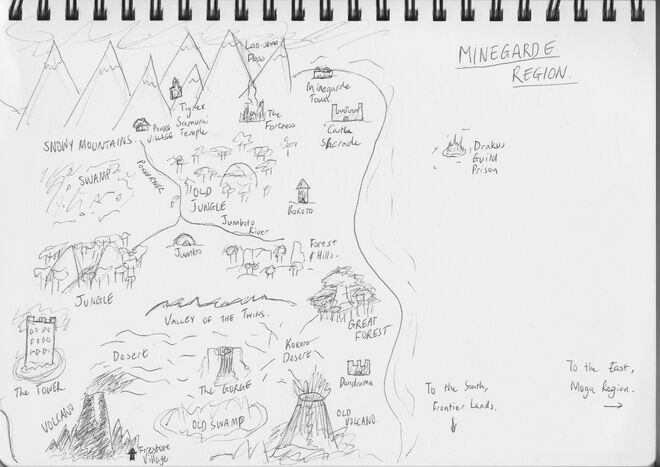 MINEGARDE
REGION.
Lao-Shan
Pass
Minegarde
Town.
Tigrex
Samurai
Temple
The
Fortress
Castle
Schrade
Pokke
Village
SNOWY MOUNTAINS.
Drakw
Guild
Prison
SWAMP
POKKE RIVER
OLD
JUNGLE
KOKOTO
Jumboto
River
Jumbo
Forest
& Hills.
JUNGLE
VALLEY OF THE TWINS.
GREAT
FOREST
Desert
Kokoto
Desert
The TOWER
The GORGE
Dundruma
To the East,
Moga Region.
To the South,
Frontier Lands.
VOLCANO
OLD SWAMP
OLD
VOLCANO.
Firestone
Village